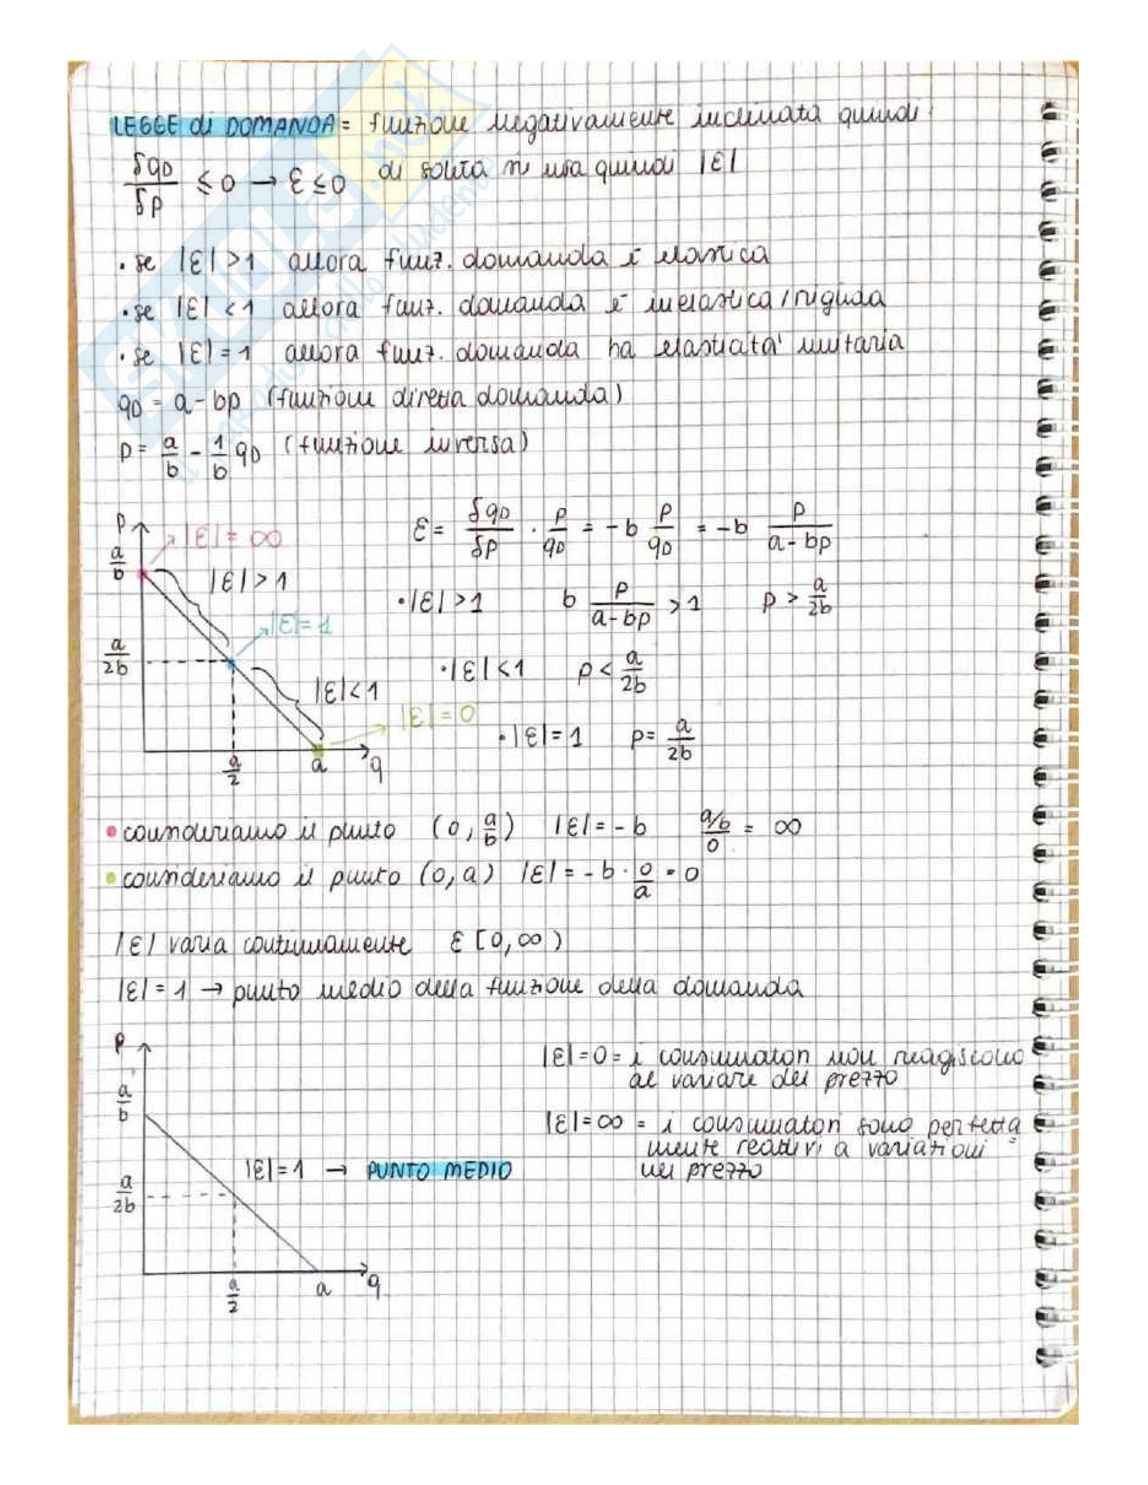 LEGGE di DOMANDA = funzione negativamente inclinata quindi:
δqD/δp ≤ 0 → ε ≤ 0 di solito si usa quindi |ε|
• se |ε| > 1 allora funz. domanda è elastica
• se |ε| < 1 allora funz. domanda è inelastica/rigida
• se |ε| = 1 allora funz. domanda ha elasticità unitaria
qD = a - bp (funzione diretta domanda)
p = a/b - 1/b qD (funzione inversa)
p
a/b
|ε| = ∞
|ε| > 1
|ε| = 1
a/2b
|ε| < 1
|ε| = 0
a/2
a
q
ε = δqD/δp · p/qD = -b p/qD = -b p/a-bp
• |ε| > 1 b p/a-bp > 1 p > a/2b
• |ε| < 1 p < a/2b
• |ε| = 1 p = a/2b
• consideriamo il punto (0, a/b) |ε| = -b a/b/0 = ∞
• consideriamo il punto (0, a) |ε| = -b · 0/a = 0
|ε| varia continuamente ε [0, ∞)
|ε| = 1 → punto medio della funzione della domanda
p
a/b
|ε| = 1 → PUNTO MEDIO
a/2b
a/2
a
q
|ε| = 0 = i consumatori non reagiscono
al variare del prezzo
|ε| = ∞ = i consumatori sono perfetta
mente reattivi a variazioni
nel prezzo
SKUOLA.net